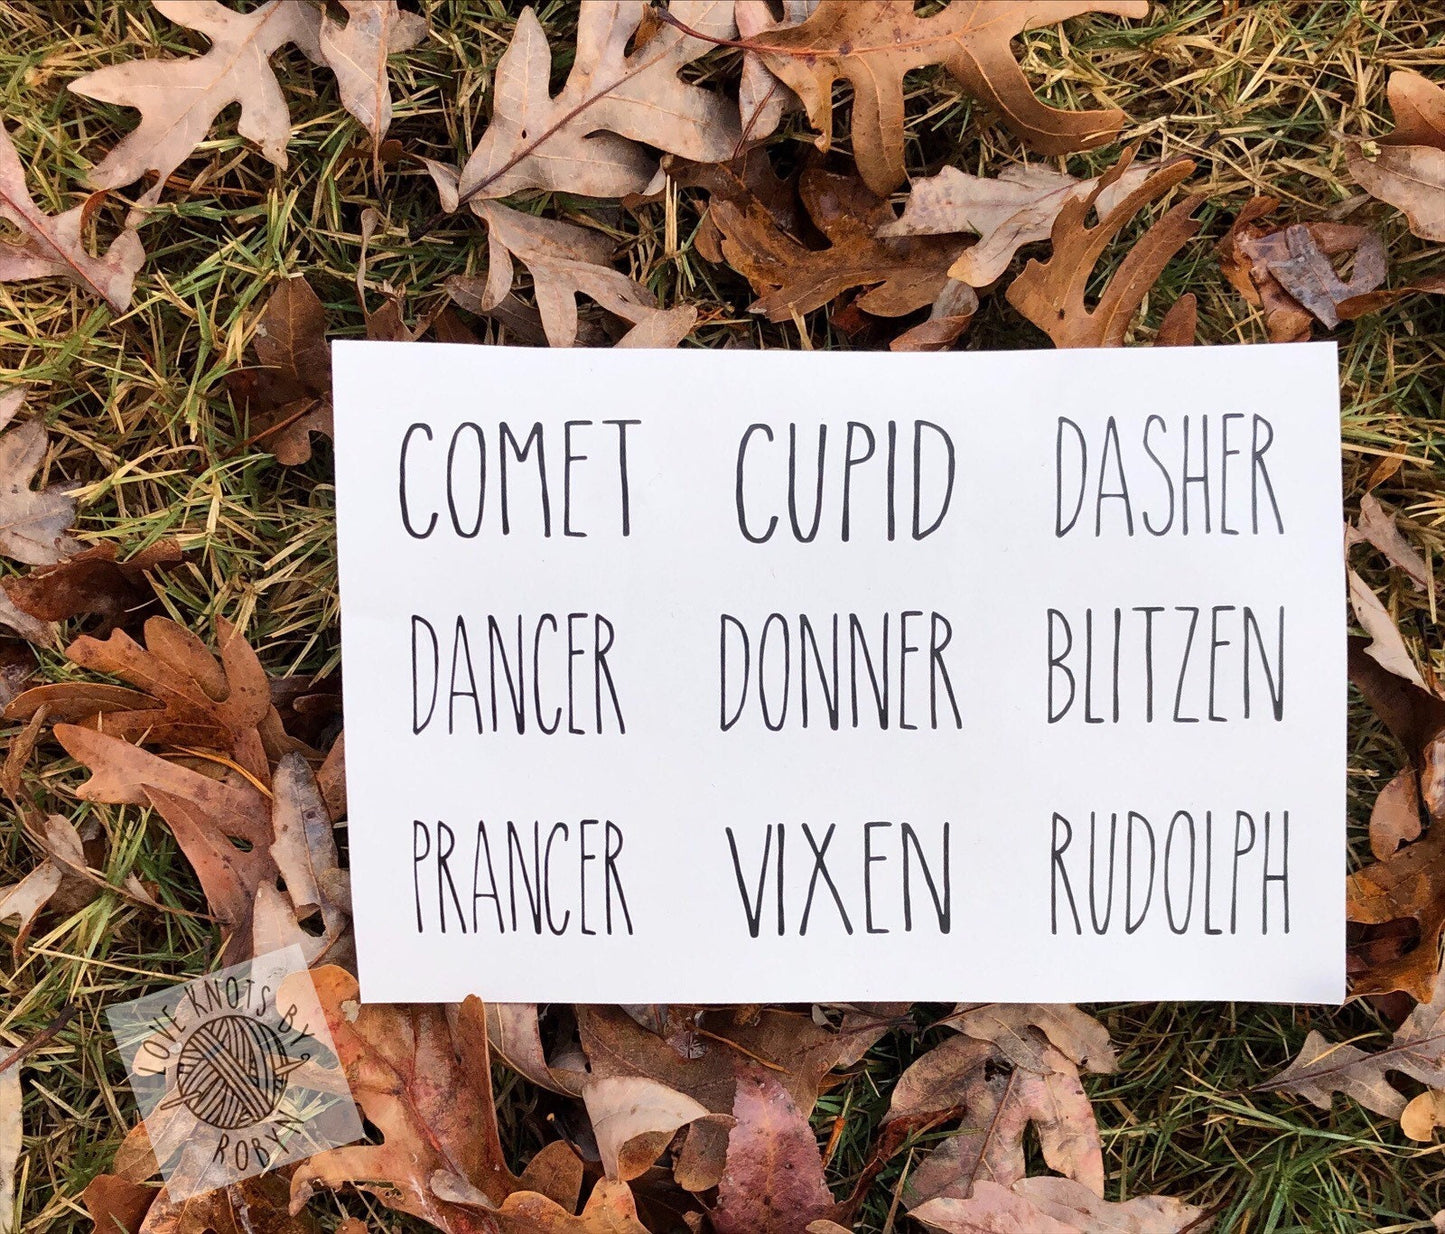 COMET CUPID DASHER
DANCER DONNER BLITZEN
PRANCER VIXEN RUDOLPH
LOVE KNOTS BY
ROBYN